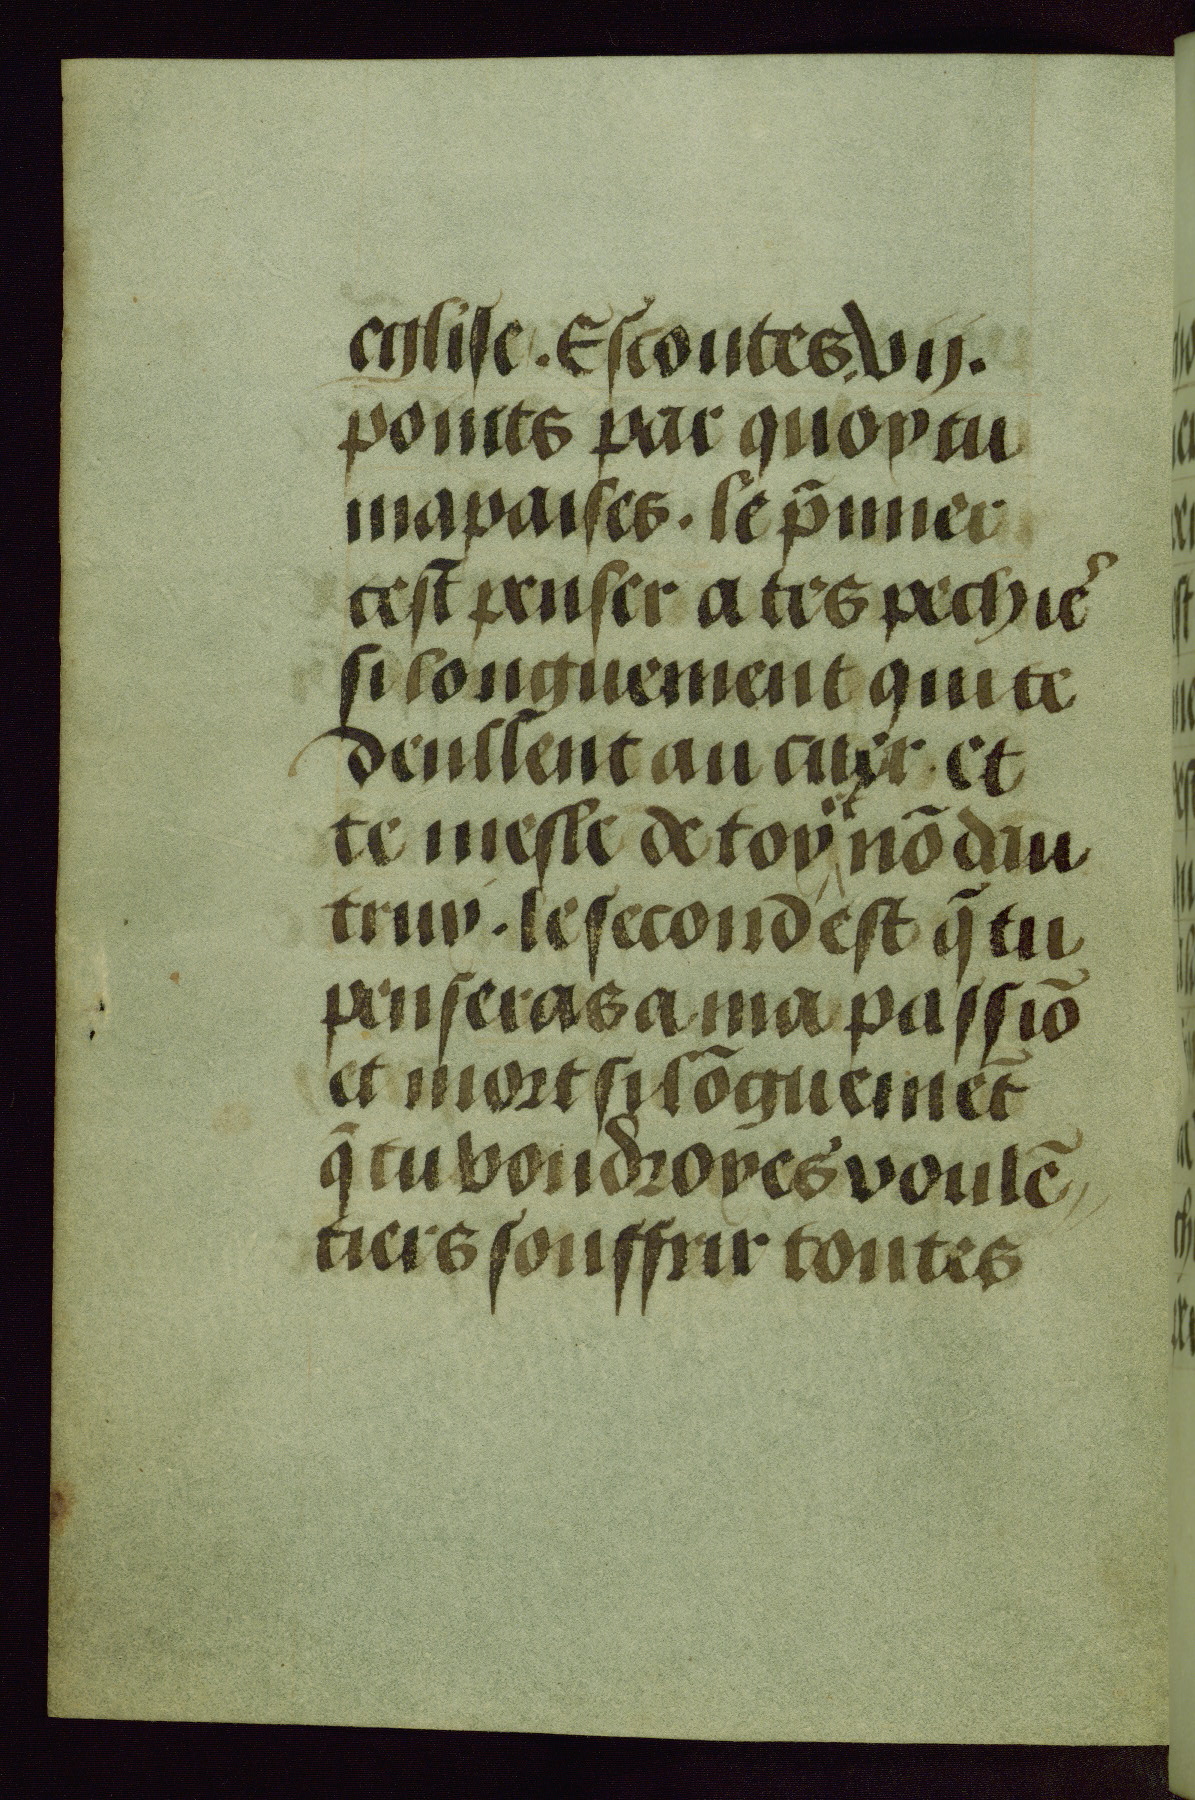 eglise . Escoutes .vij.
points par quoy tu
mapaises . le p̃mier
cest penser a tes pechie᷒
si longuement quil te
deullent au cuer . et
te mesle de toy et nõ dau
truy . le second est q̃ tu
penseras a ma passiõ
et mort si lõguemẽt
q̃ tu voudroyes voulẽ
tiers souffrir toutes